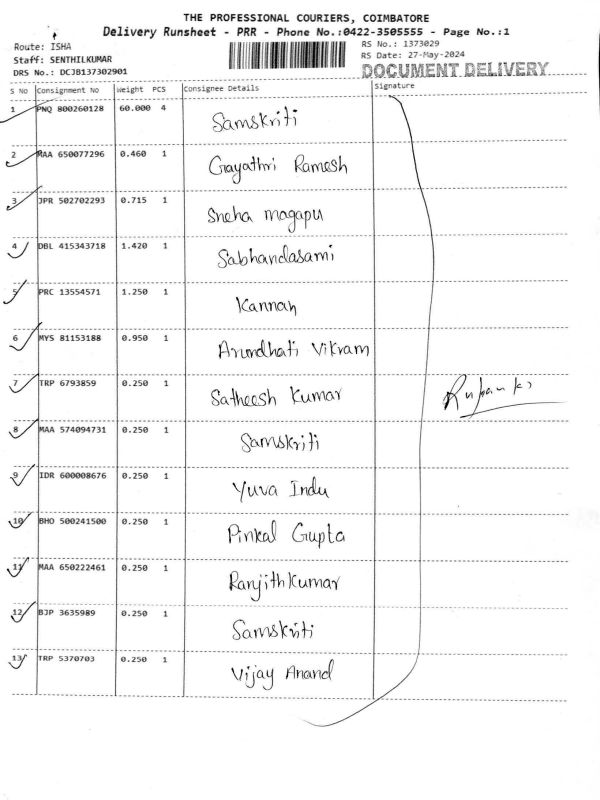 THE PROFESSIONAL COURIERS, COIMBATORE
Delivery Runsheet - PRR - Phone No.:0422-3505555 - Page No.:1
Route: ISHA
Staff: SENTHILKUMAR
DRS No.: DCJB137302901
RS No.: 1373029
RS Date: 27-May-2024
DOCUMENT DELIVERY
S No Consignment No Weight PCS Consignee Details Signature
1 PNQ 800260128 60.000 4 Samskriti
2 MAA 650077296 0.460 1 Gayathri Ramesh
3 JPR 502702293 0.715 1 Sneha magapu
4 DBL 415343718 1.420 1 Sabhandasami
5 PRC 13554571 1.250 1 Kannan
6 MYS 81153188 0.950 1 Arundhati Vikram
7 TRP 6793859 0.250 1 Satheesh Kumar
8 MAA 574094731 0.250 1 Samskriti
9 IDR 600008676 0.250 1 Yuva Indu
10 BHO 500241500 0.250 1 Pinkal Gupta
11 MAA 650222461 0.250 1 Ranjithkumar
12 BJP 3635989 0.250 1 Samskriti
13 TRP 5370703 0.250 1 Vijay Anand